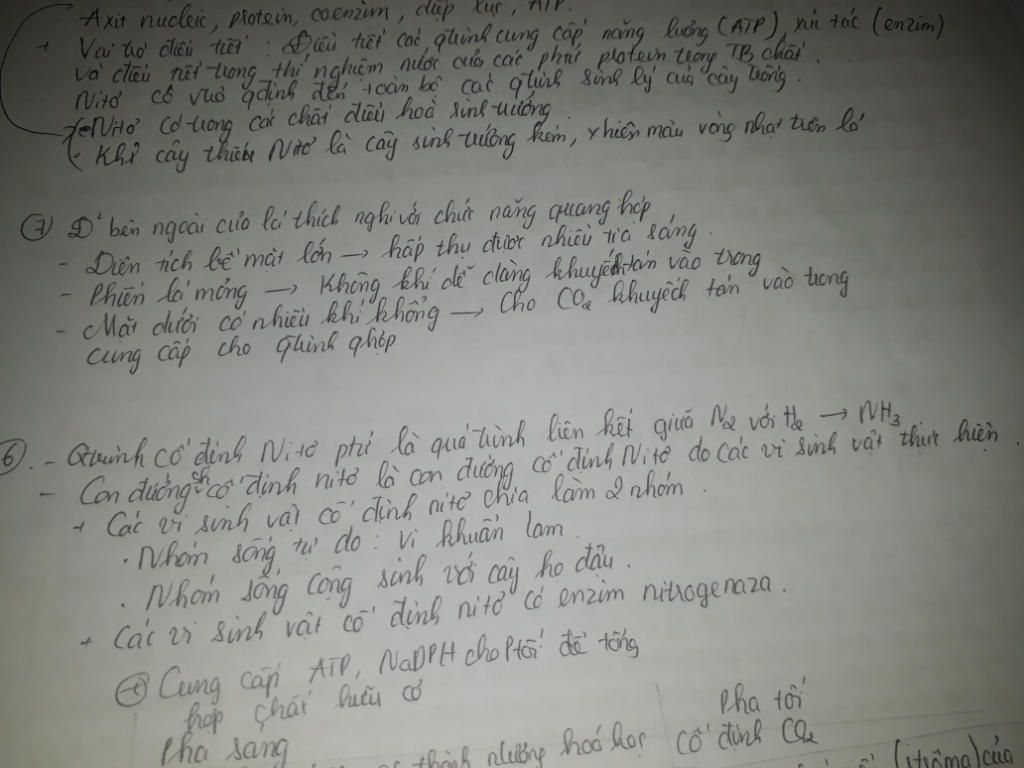 Axit nucleic, protein, coenzim, diệp lục, ATP.
+ Vai trò điều tiết : Điều tiết các qtrình cung cấp năng lượng (ATP), xúc tác (enzim)
và điều tiết trạng thí nghiệm nước của các phtử protein trong TB chất.
Nitơ có vtrò qđịnh đến toàn bộ các qtrình sinh lý của cây trồng.
Nitơ có trong các chất điều hoà sinh trưởng
. Khi cây thiếu Nitơ là cây sinh trưởng kém, xhiện màu vàng nhạt trên lá
7) Đ² bên ngoài của lá thích nghi với chức năng quang hợp
- Diện tích bề mặt lớn → hấp thụ được nhiều tia sáng.
- Phiến lá mỏng → Không khí dễ dàng khuyếch tán vào trong
- Mặt dưới có nhiều khí khổng → Cho CO2 khuyếch tán vào trong
cung cấp cho qtrình qhợp
6. - Qtrình cố định Nitơ ptử là quá trình liên kết giữa N2 với H2 → NH3
- Con đường sh cố định nitơ là con đường cố định Nitơ do các vi sinh vật thực hiện.
+ Các vi sinh vật cố định nitơ chia làm 2 nhóm.
. Nhóm sống tự do : vi khuẩn lam.
. Nhóm sống cộng sinh với cây họ đậu.
+ Các vi sinh vật cố định nitơ có enzim nitrogenaza.
Cung cấp ATP, NaDPH cho Ptối để tổng
hợp chất hữu cơ
Pha sáng
Pha tối
thành nlượng hoá học
cố định CO2
(strôma) của